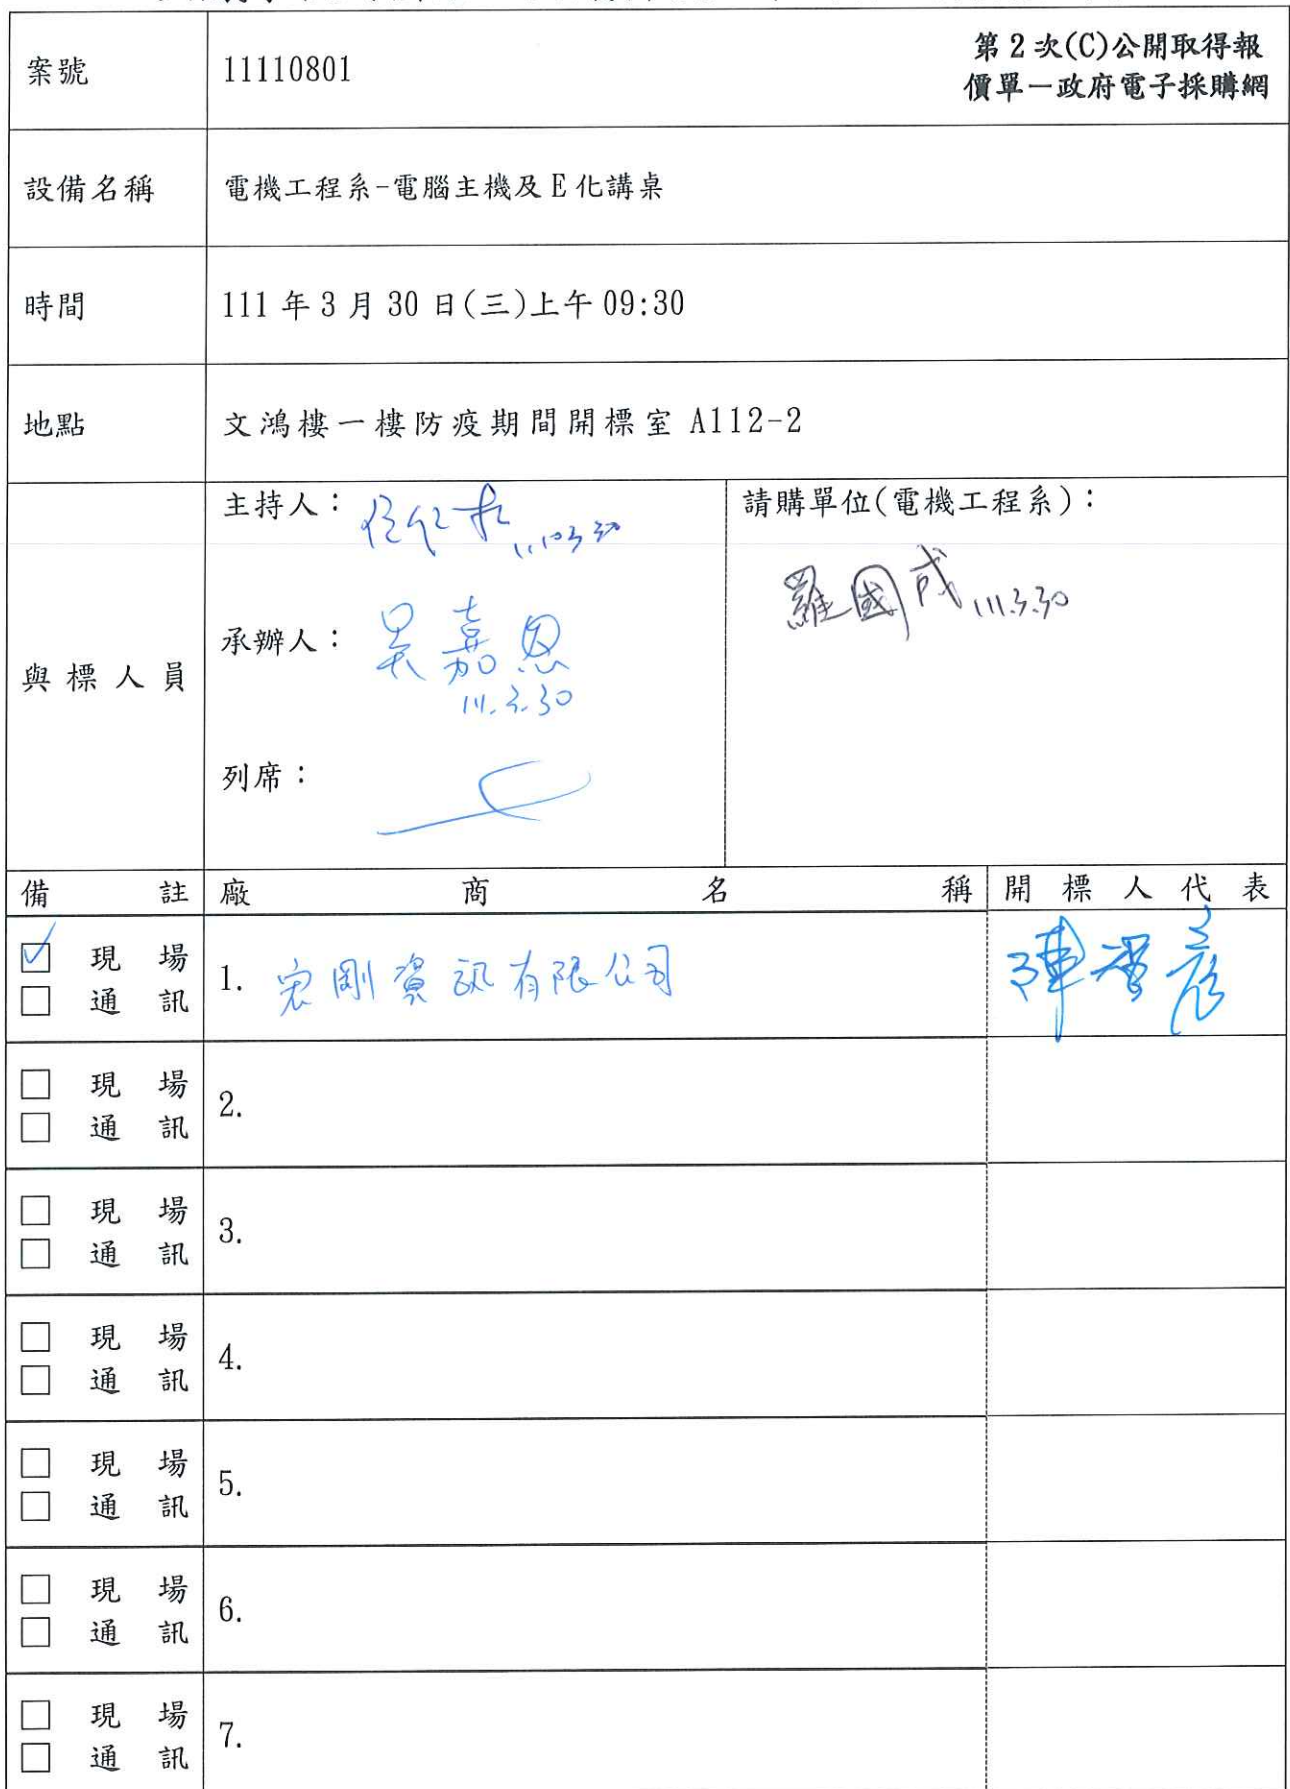 案號
11110801
第2次(C)公開取得報
價單－政府電子採購網
設備名稱
電機工程系-電腦主機及E化講桌
時間
111年3月30日(三)上午09:30
地點
文鴻樓一樓防疫期間開標室 A112-2
與標人員
主持人：
請購單位(電機工程系)：
羅國成 111.3.30
承辦人： 吳嘉恩
111.3.30
列席：
備註 廠商名稱 開標人代表
☑ 現場
□ 通訊
1. 宏剛資訊有限公司
□ 現場
□ 通訊
2.
□ 現場
□ 通訊
3.
□ 現場
□ 通訊
4.
□ 現場
□ 通訊
5.
□ 現場
□ 通訊
6.
□ 現場
□ 通訊
7.